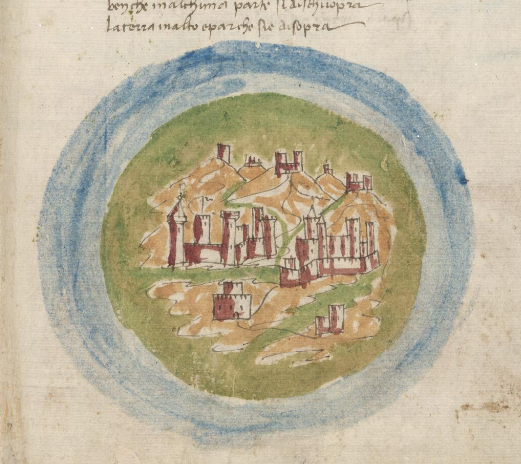 benche inalchuna parte si dischuopra
la terra inalto eparche sie disopra